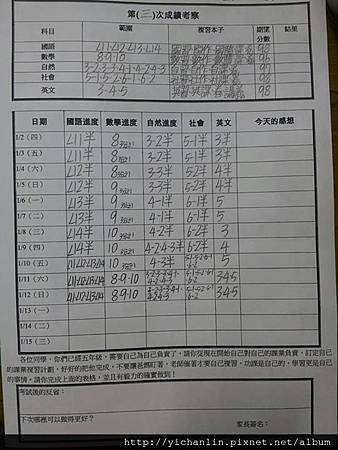 第(三)次成績考察
科目 範圍 複習本子 期望分數 結果
國語 L11-L12-L13-L14 98
數學 8-9-10 95
自然 3-2-3-3-4-1-4-2-4-3
社會 5-1-5-2-6-1-6-2 98
英文 3-4-5 98
日期 國語進度 數學進度 自然進度 社會 英文 今天的感想
1/2 (四) L11半 8 3-2半 5-1半 3半
1/3 (五) L11半 8 3-2半 5-1半 3半
1/4 (六) L12半 8 3-3半 5-2半 4半
1/5 (日) L12半 9 3-3半 5-2半 4半
1/6 (一) L13半 9 4-1半 6-1半 5
1/7 (二) L13半 9 4-1半 6-1半 5
1/8 (三) L14半 10 4-2半 6-2半 3
1/9 (四) L14半 10 4-2-4-3半 6-2半 4
1/10 (五) L11-L12-L13-L14 10 4-3半 5-1-5-2-6-1-6-2 5
1/11 (六) L11-L12-L13-L14 8-9-10 3-2-3-3-4-1-4-2-4-3 5-1-5-2-6-1-6-2 3-4-5
1/12 (日) L11-L12-L13-L14 8-9-10 3-2-3-3-4-1-4-2-4-3 5-1-5-2-6-1-6-2 3-4-5
1/13 (一)
1/14 (二)
1/15 (三)
各位同學，你們已經五年級，需要自己為自己負責了，請你從現在開始自己對自己的課業負責，訂定自己
的課業複習計劃，好好的把他完成，不要讓爸媽盯著，老師催著才要自己複習，功課是自己的，學習更是自己
的事情，請你完成上面的表格，並且有毅力的確實做到！
考試後的反省：
下次哪裡可以做得更好？ 家長簽名：
http://yichanlin.pixnet.net/album